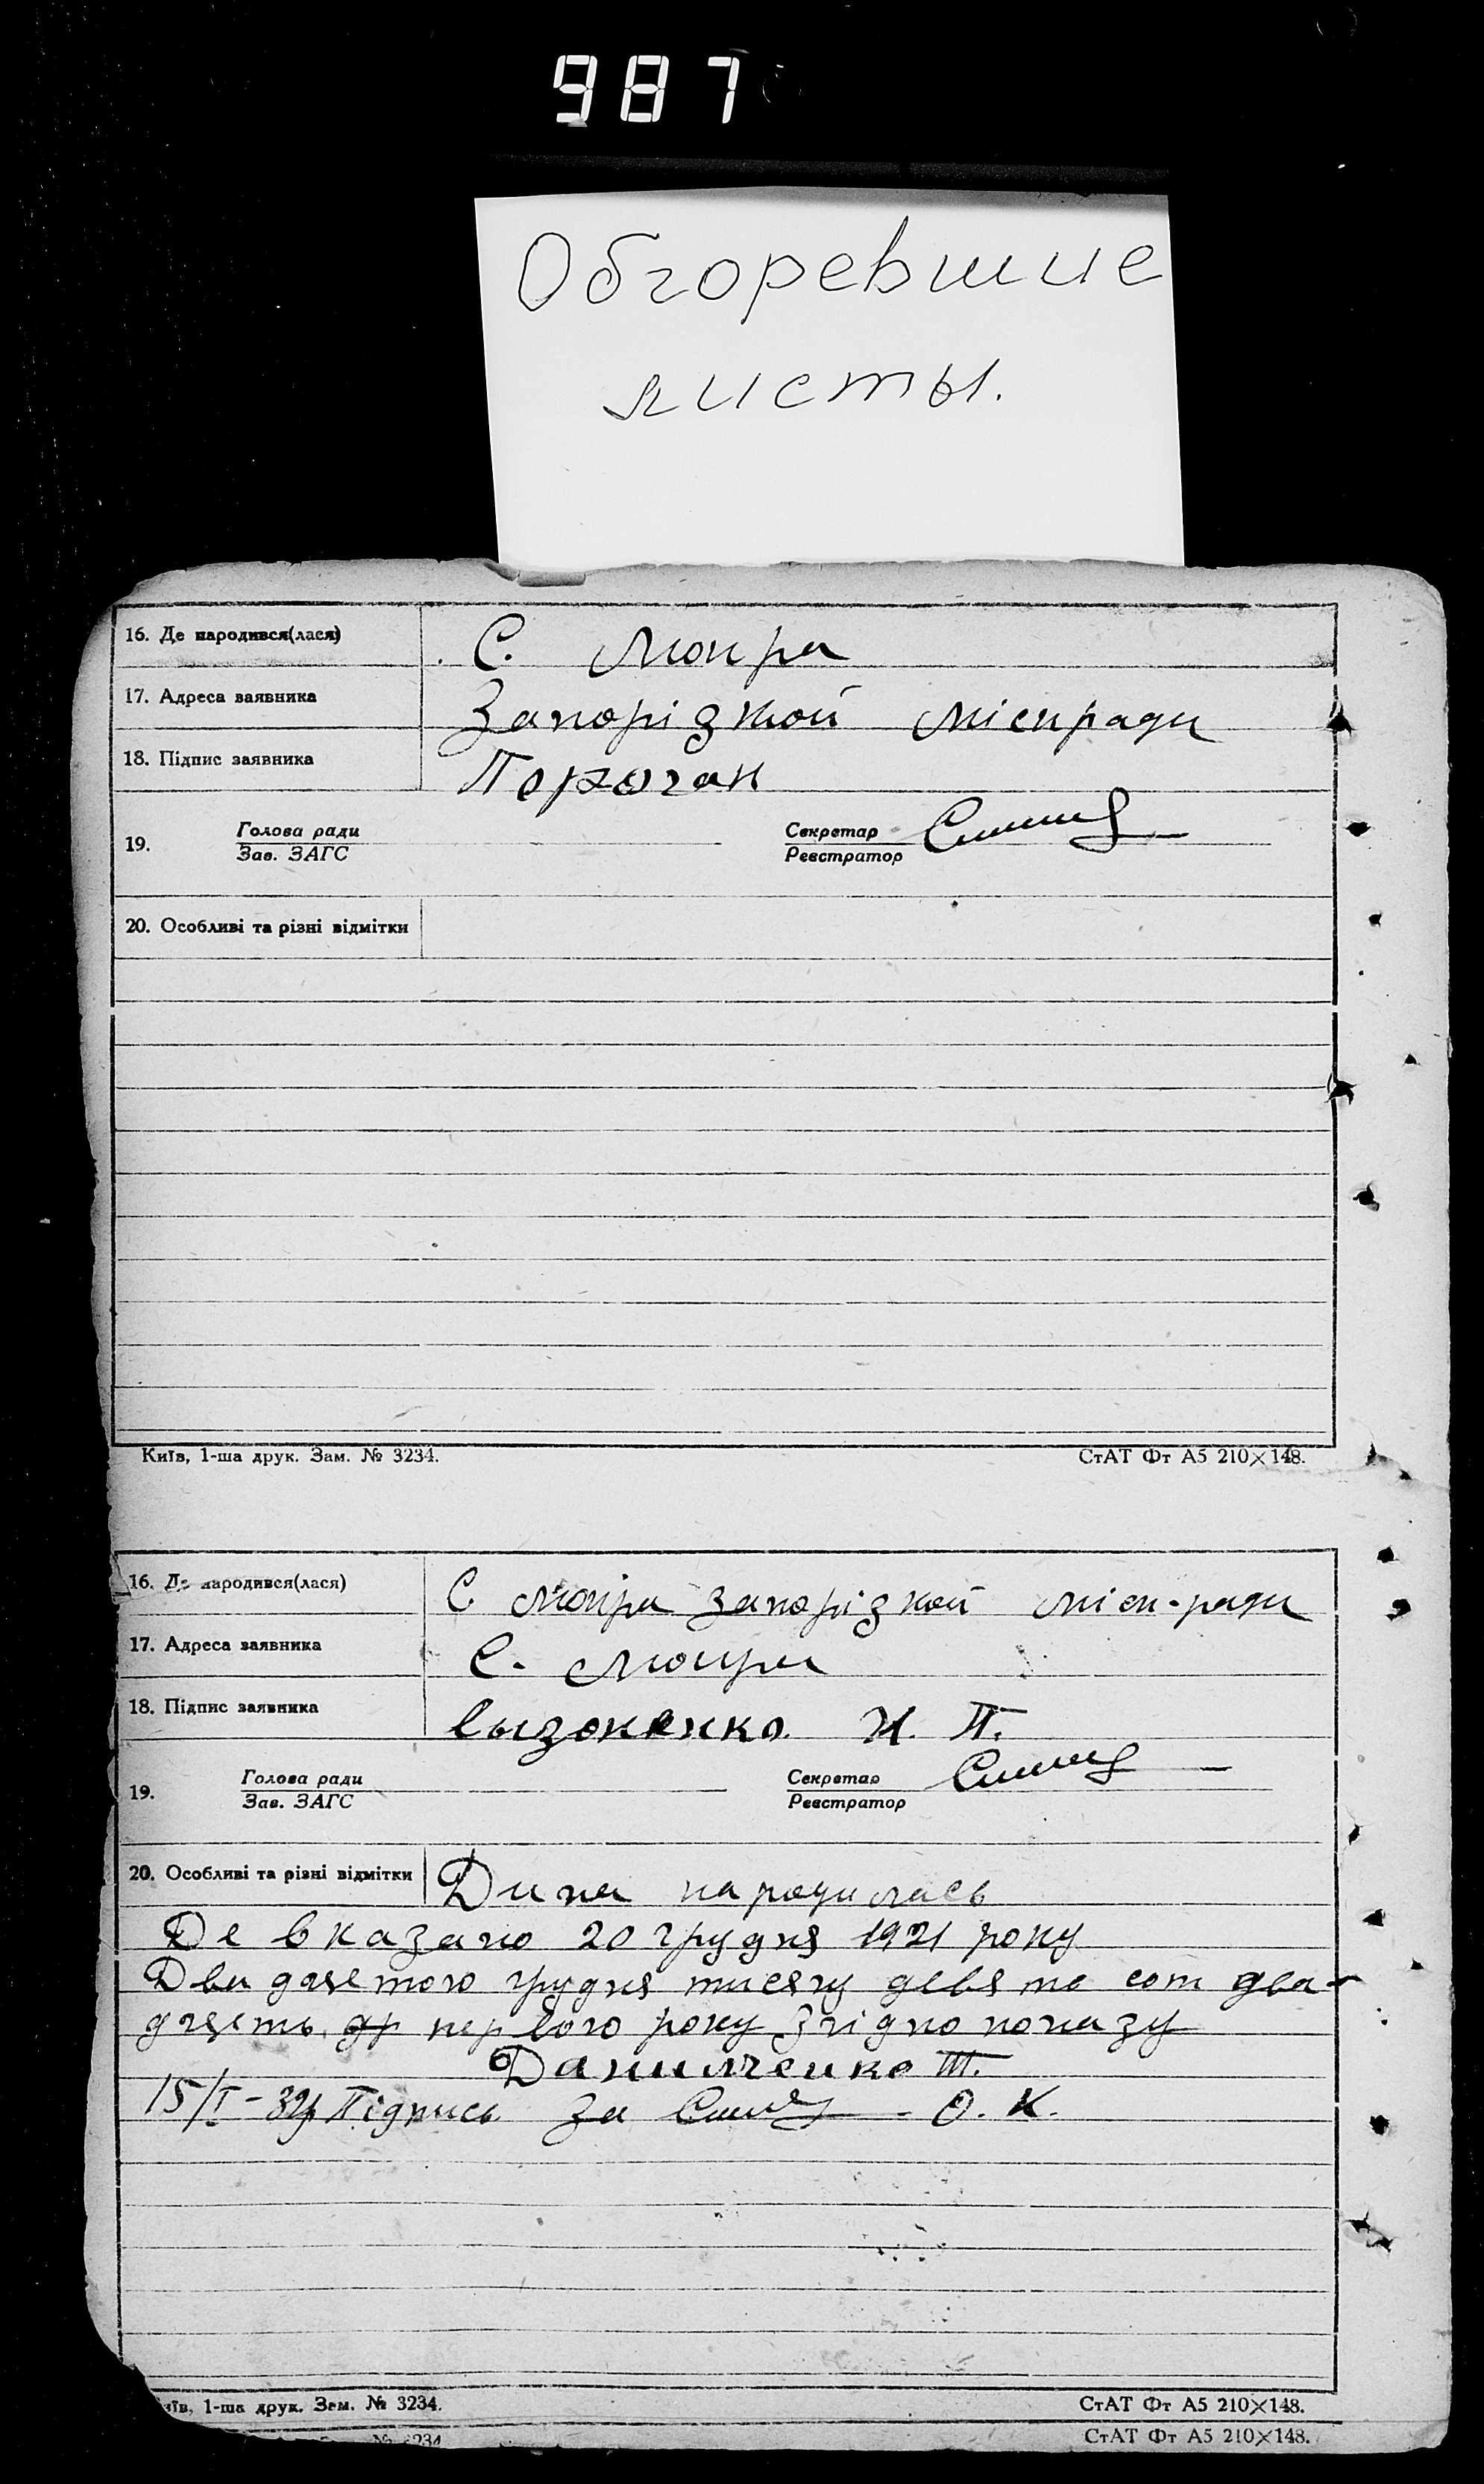 987
Обгоревшие
листы.
16. Де народився(лася)
С. Мокра
17. Адреса заявника
Запорізкой міськради
18. Підпис заявника
19.
Голова ради
Зав. ЗАГС
Секретар
Реєстратор
20. Особливі та різні відмітки
Київ, 1-ша друк. Зам. № 3234.
СтАТ Фт А5 210×148.
16. Де народився(лася)
С Мокра Запорізкой міск-ради
17. Адреса заявника
С. Мокра
18. Підпис заявника
Н. П.
19.
Голова ради
Зав. ЗАГС
Секретар
Реєстратор
20. Особливі та різні відмітки
народилась
Де вказано 20 грудня 1921 року
Двадцетого грудня тисячу девято сот два-
дцеть первого року Згідно показу
Данильченко Т.
15/I- Підпись за О. К.
їв, 1-ша друк. Зам. № 3234.
СтАТ Фт А5 210×148.
№ 3234
СтАТ Фт А5 210×148.